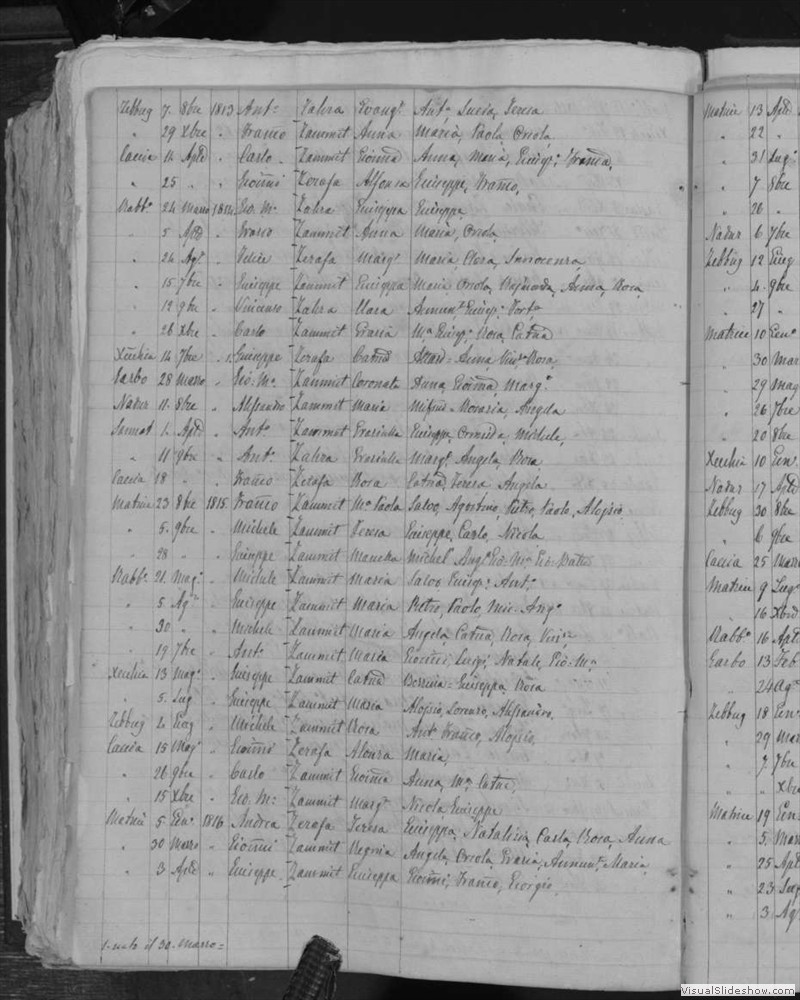 Zebbug 7 8bre 1813 Ant. Zahra Evang.ta Ant. Lucia, Teresa
" 29 Xbre " Franco Zammit Anna Maria, Paola, Orsola
Caccia 14 Aple " Carlo Zammit Gioanna Anna, Maria, Giusep. Franca.
" 25 " " Gioanni Zerafa Alfonsa Giuseppe, Franco.
Rabb.o 24 Marzo 1814 Gio. M. Zahra Giuseppa Giuseppa
" 5 Aple " Franco Zammit Anna Maria, Orsola
" 24 Ag.o " Felice Zerafa Marg.ta Maria, Clara, Innocenza
" 15 7bre " Giuseppe Zammit Giuseppa Maria Orsola, Anna, Rosa
" 12 9bre " Vincenzo Zahra Clara
" 26 Xbre " Carlo Zammit Grazia Ma. Giusep. Rosa, Catna
Xeuchia 14 7bre 1. Giuseppe Zerafa Catna Anna, Rosa
Garbo 28 Marzo " Gio. M. Zammit Coronata Anna, Gioanna, Marg.a
Nadur 11 8bre " Alessandro Zammit Maria Mifsud - Rosaria, Angela
Sannat 1 Aple " Ant. Zammit Graziulla Giuseppe, Michele
" 11 9bre " Ant. Zahra Graziulla Marg.ta Angela, Rosa
Caccia 18 " " Franco Zerafa Rosa Catna, Teresa Angela
Matrice 23 8bre 1815 Franco Zammit Ma. Paola Salvo, Agostino, Pietro, Paolo, Aloisio
" 5 9bre " Michele Zammit Teresa Giuseppe, Carlo, Nicola
" 28 " " Giuseppe Zammit Michel Ang.o Gio. Ma. Gio. Batta
Rabb.o 21 Mag.o " Michele Zammit Maria Salvo Giusep. Ant.
" 5 Ag.o " Giuseppe Zammit Maria Pietro, Paolo, Mic. Ang.o
" 30 " " Michele Zammit Maria Angela, Catna, Rosa
" 19 7bre " Ant. Zammit Maria Gioanni, Luigi, Natale, Gio. Ma.
Xeuchia 13 Mag.o " Giuseppe Zammit Catna Giuseppa, Rosa
" 5 Lug " Giuseppe Zammit Maria Aloisio, Lorenzo, Alessandro
Zebbug 4 Giug " Michele Zammit Rosa Ant. Franco, Aloisio
Caccia 15 Mag.o " Gioanni Zerafa Alonza Maria
" 26 9bre " Carlo Zammit Gioanna Anna, Ma. Catna
" 15 Xbre " Gio. M. Zammit Marg.ta Nicola, Giuseppe
Matrice 5 Gen.o 1816 Andrea Zerafa Teresa Giuseppa, Natalizia, Carla, Rosa, Anna
" 30 Marzo " Gioanni Zammit Angela, Orsola, Grazia, Annunt. Maria
" 3 Aple " Giuseppe Zammit Giuseppa Gioanni, Franco, Giorgio
1. nato il 30. Marzo =
Matrice 13 Aple
" 22 "
" 31 Lug.o
" 7 8bre
" 26 "
Nadur 6 7bre
Zebbug 12 Giug
" 4 9bre
" 27 "
Matrice 10 Gen.o
" 30 Mar
" 29 Mag
" 26 7bre
" 20 8bre
Xeuchia 10 Gen.
Nadur 17 Aple
Zebbug 30 8bre
" 6 9bre
Caccia 25 Marzo
Matrice 9 Lug.o
" 16 Xbre
Rabb.o 16 Aple
Garbo 13 Feb
" 24 Ag.o
Zebbug 18 Gen.
" 29 Mar
" 7 7bre
" " Xbre
Matrice 19 Gen.
" 5 Mar
" 25 Aple
" 23 Lug
" 3 Ag.o
VisualSlideshow.com